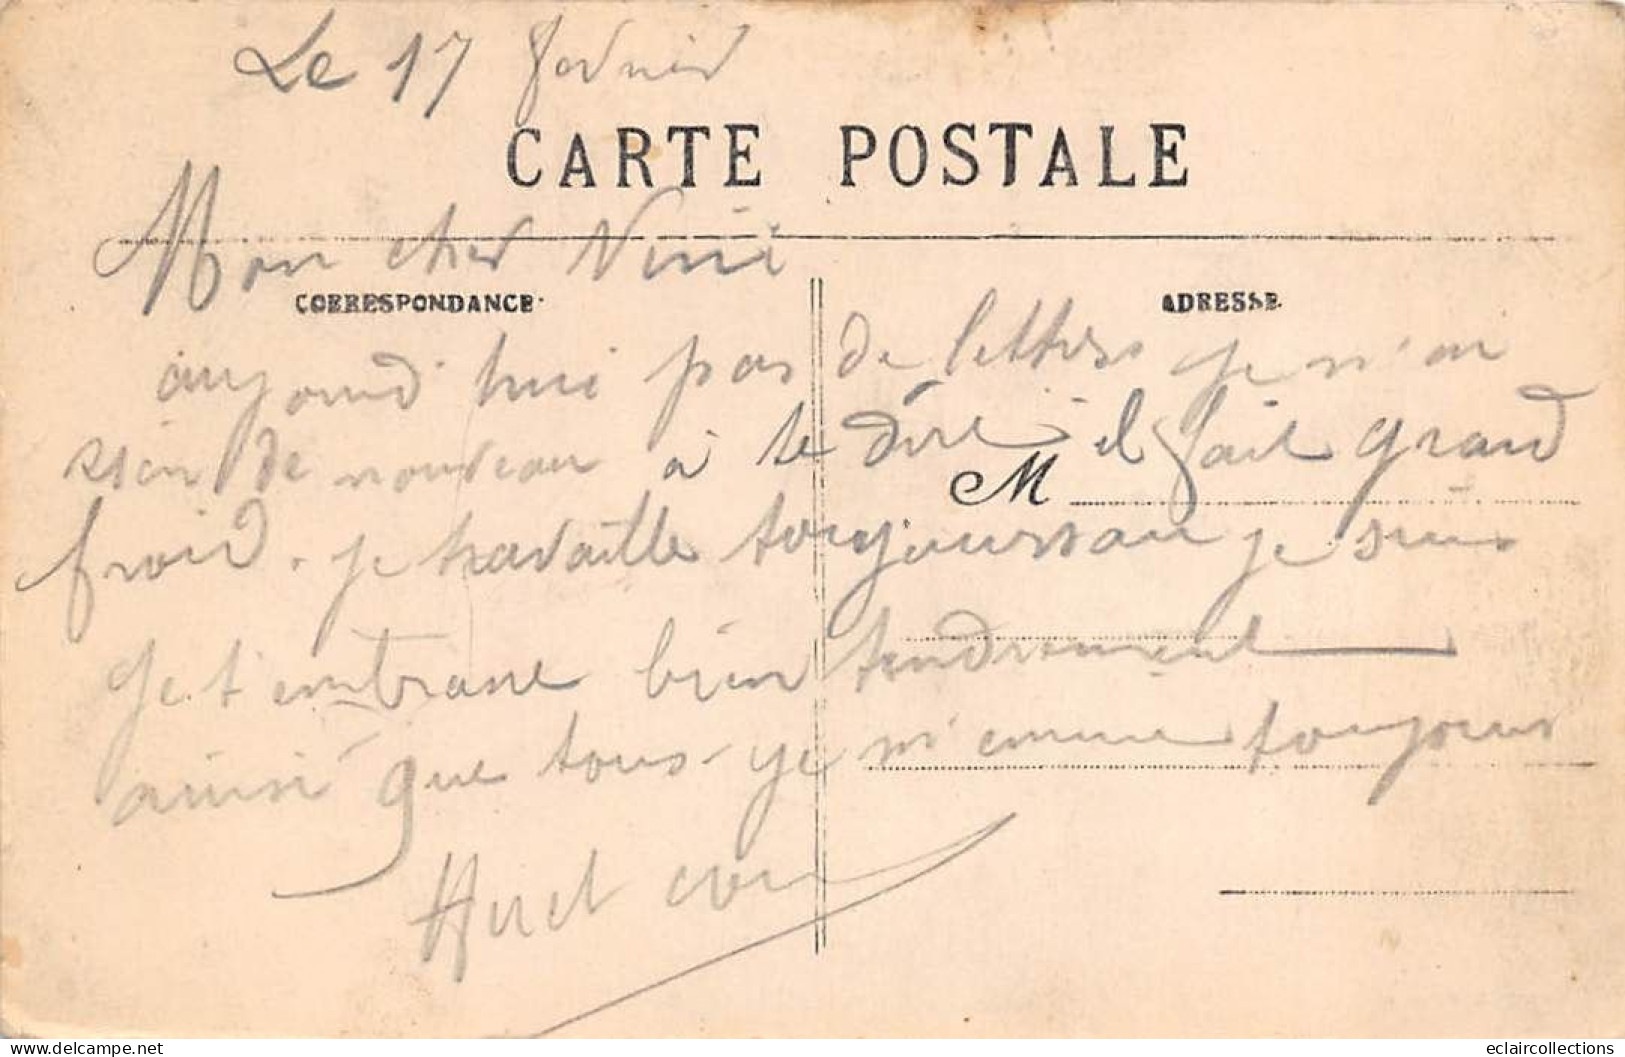 Le 17 fevrier
CARTE POSTALE
Mon cher Nini
CORRESPONDANCE
ADRESSE
aujourd'hui pas de lettres je n'ai
rien de nouveau à te dire il fait grand
M
froid. je travaille toujours au je suis
Je t'embrasse bien tendrement
ainsi que tous. je m'ennuie toujours
www.delcampe.net
eclaircollections